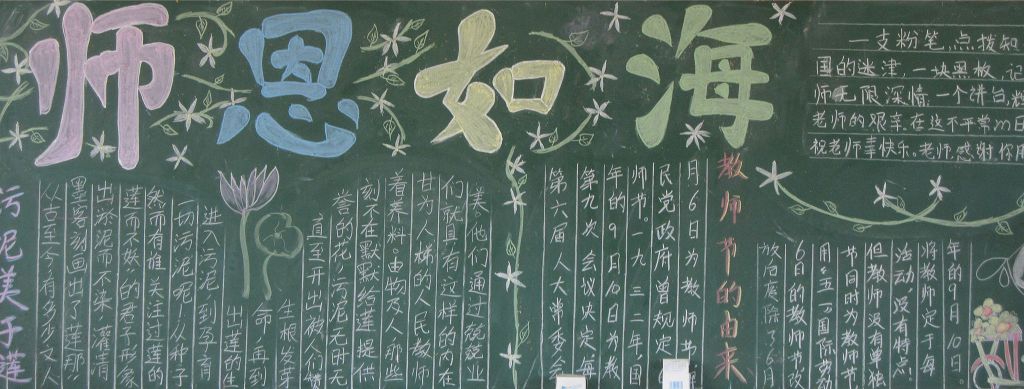 师恩如海
一支粉笔,点拨知
国的迷津,一块黑板,记
师无限深情,一个讲台,
老师的艰辛.在这不平常的日
祝老师幸快乐.老师,感谢你用
污泥美于莲
从古至今,有多少文人
墨客刻画出了莲那"
出淤泥而不染,濯清
莲而不妖"的君子形象
然而有谁关注过莲的
一切污泥呢!从种子
进入污泥,到孕育
出莲的生
命,再到
生根发芽
直至开出傲人们赞
誉的花,污泥无时无
刻不在默默给莲提供
着养料.由物及人,那些
甘为人梯的人民教师
们就具有这样的内在
美,他们通过兢兢业
教师节的由来
第六届人大常委会
第九次会议决定每
年的9月10日为教
师节。一九三二年,国
民党政府曾规定
月6日为教师节
放后废除了6月
6日的教师节改
用"五一"国际劳动
节同时为教师节
但教师没有单独
活动,没有特点,
将教师定于每
年的9月10日